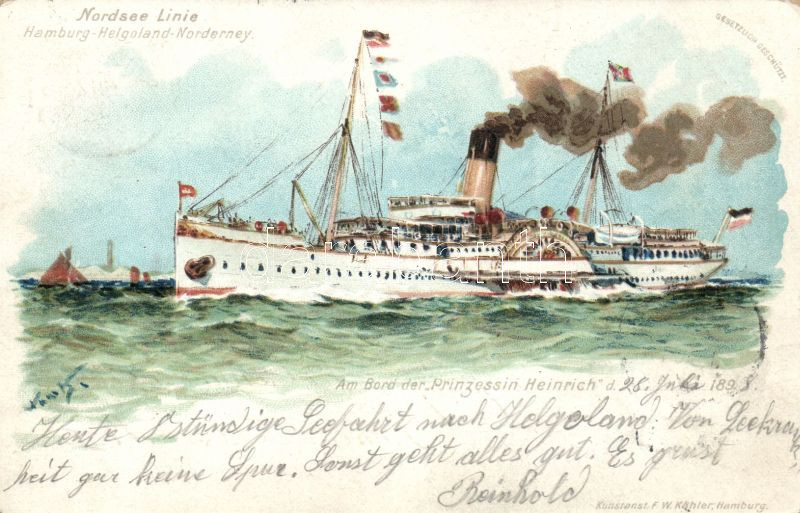 Nordsee Linie
Hamburg-Helgoland-Norderney.
GESETZLICH GESCHÜTZT.
Am Bord der „Prinzessin Heinrich" d. 28. Juli 1898.
Heute 8 stündige Seefahrt nach Helgoland. Von Seekrank
heit gar keine Spur. Sonst geht alles gut. Es grüsst
Reinhold
Kunstanst. F. W. Kähler, Hamburg.